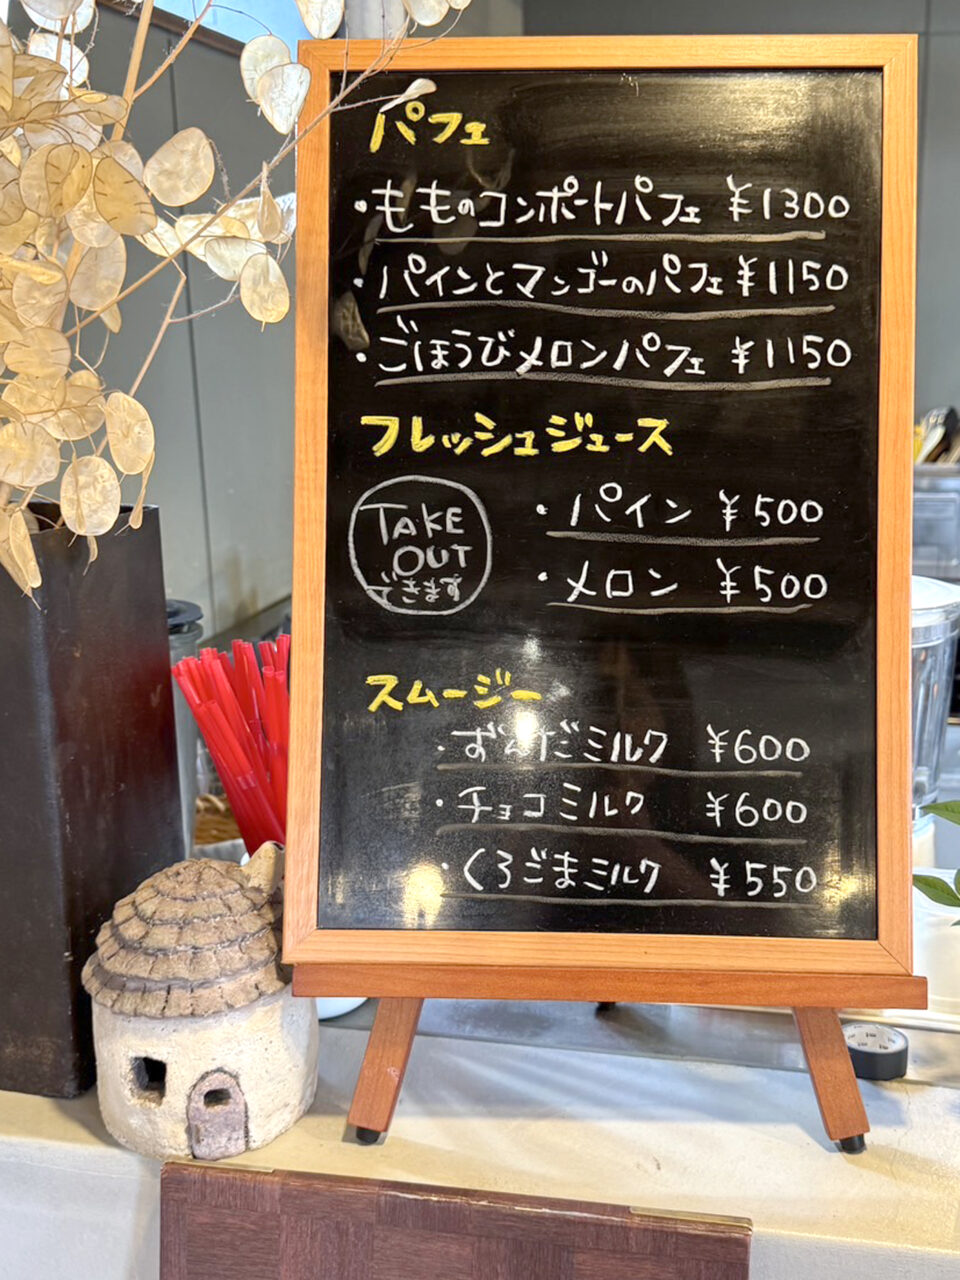 パフェ
・もものコンポートパフェ ¥1300
・パインとマンゴーのパフェ ¥1150
・ごほうびメロンパフェ ¥1150
フレッシュジュース
TAKE
OUT
できます
・パイン ¥500
・メロン ¥500
スムージー
・ずんだミルク ¥600
・チョコミルク ¥600
・くろごまミルク ¥550